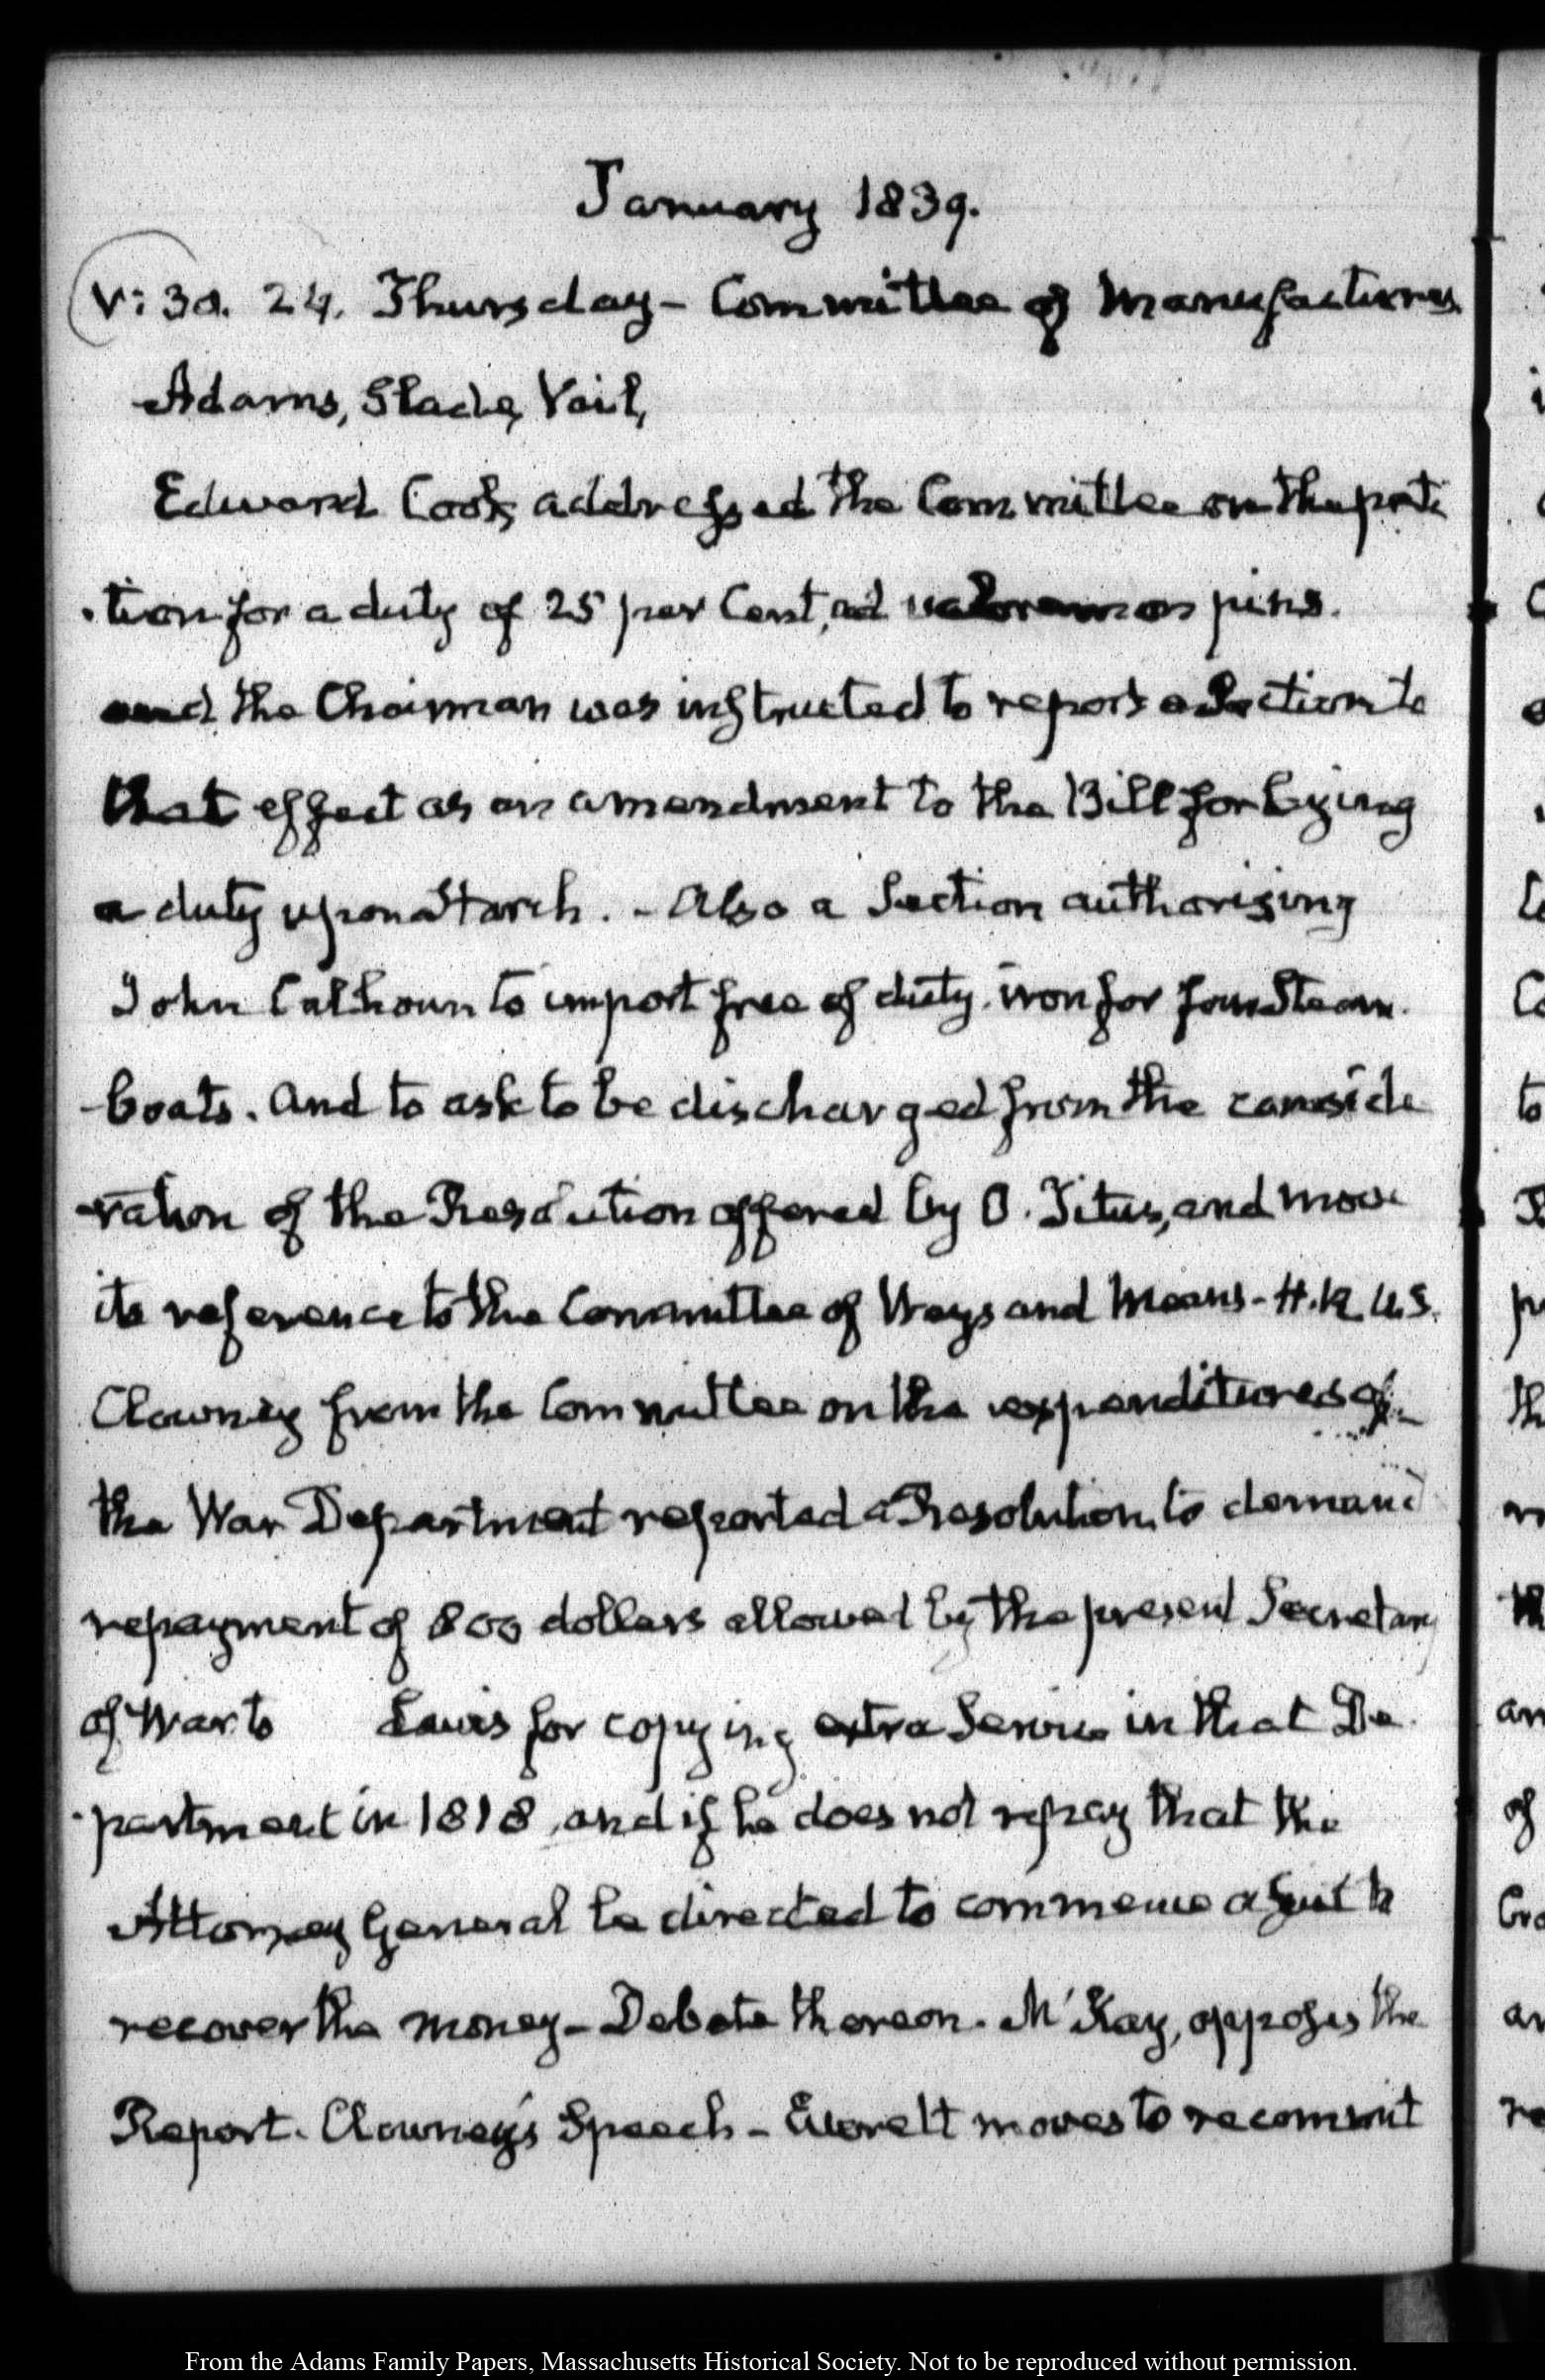 January 1839.
V: 30. 24. Thursday – Committee of Manufactures
Adams, Slade, Vail,
Edward Cook, addressed the Committee on the peti
tion for a duty of 25 per Cent, ad valorem on pins.
and the Chairman was instructed to report a Section to
that effect as an amendment to the Bill for laying
a duty upon Starch. – Also a Section authorising
John Calhoun to import free of duty iron for four Steam
boats. And to ask to be discharged from the conside
ration of the Resolution offered by O. Titus, and move
its reference to the Committee of Ways and Means – H.R. U.S.
Clowney from the Committee on the expenditures of
the War Department reported a Resolution to demand
repayment of 800 dollars allowed by the present Secretary
of War to Lewis for copying extra Service in that De
partment in 1818, and if he does not repay that the
Attorney General be directed to commence a suit to
recover the money – Debate thereon. M'Kay, opposes the
Report. Clowney's Speech – Everett moves to recommit
C
to
th
of
an
re
From the Adams Family Papers, Massachusetts Historical Society. Not to be reproduced without permission.